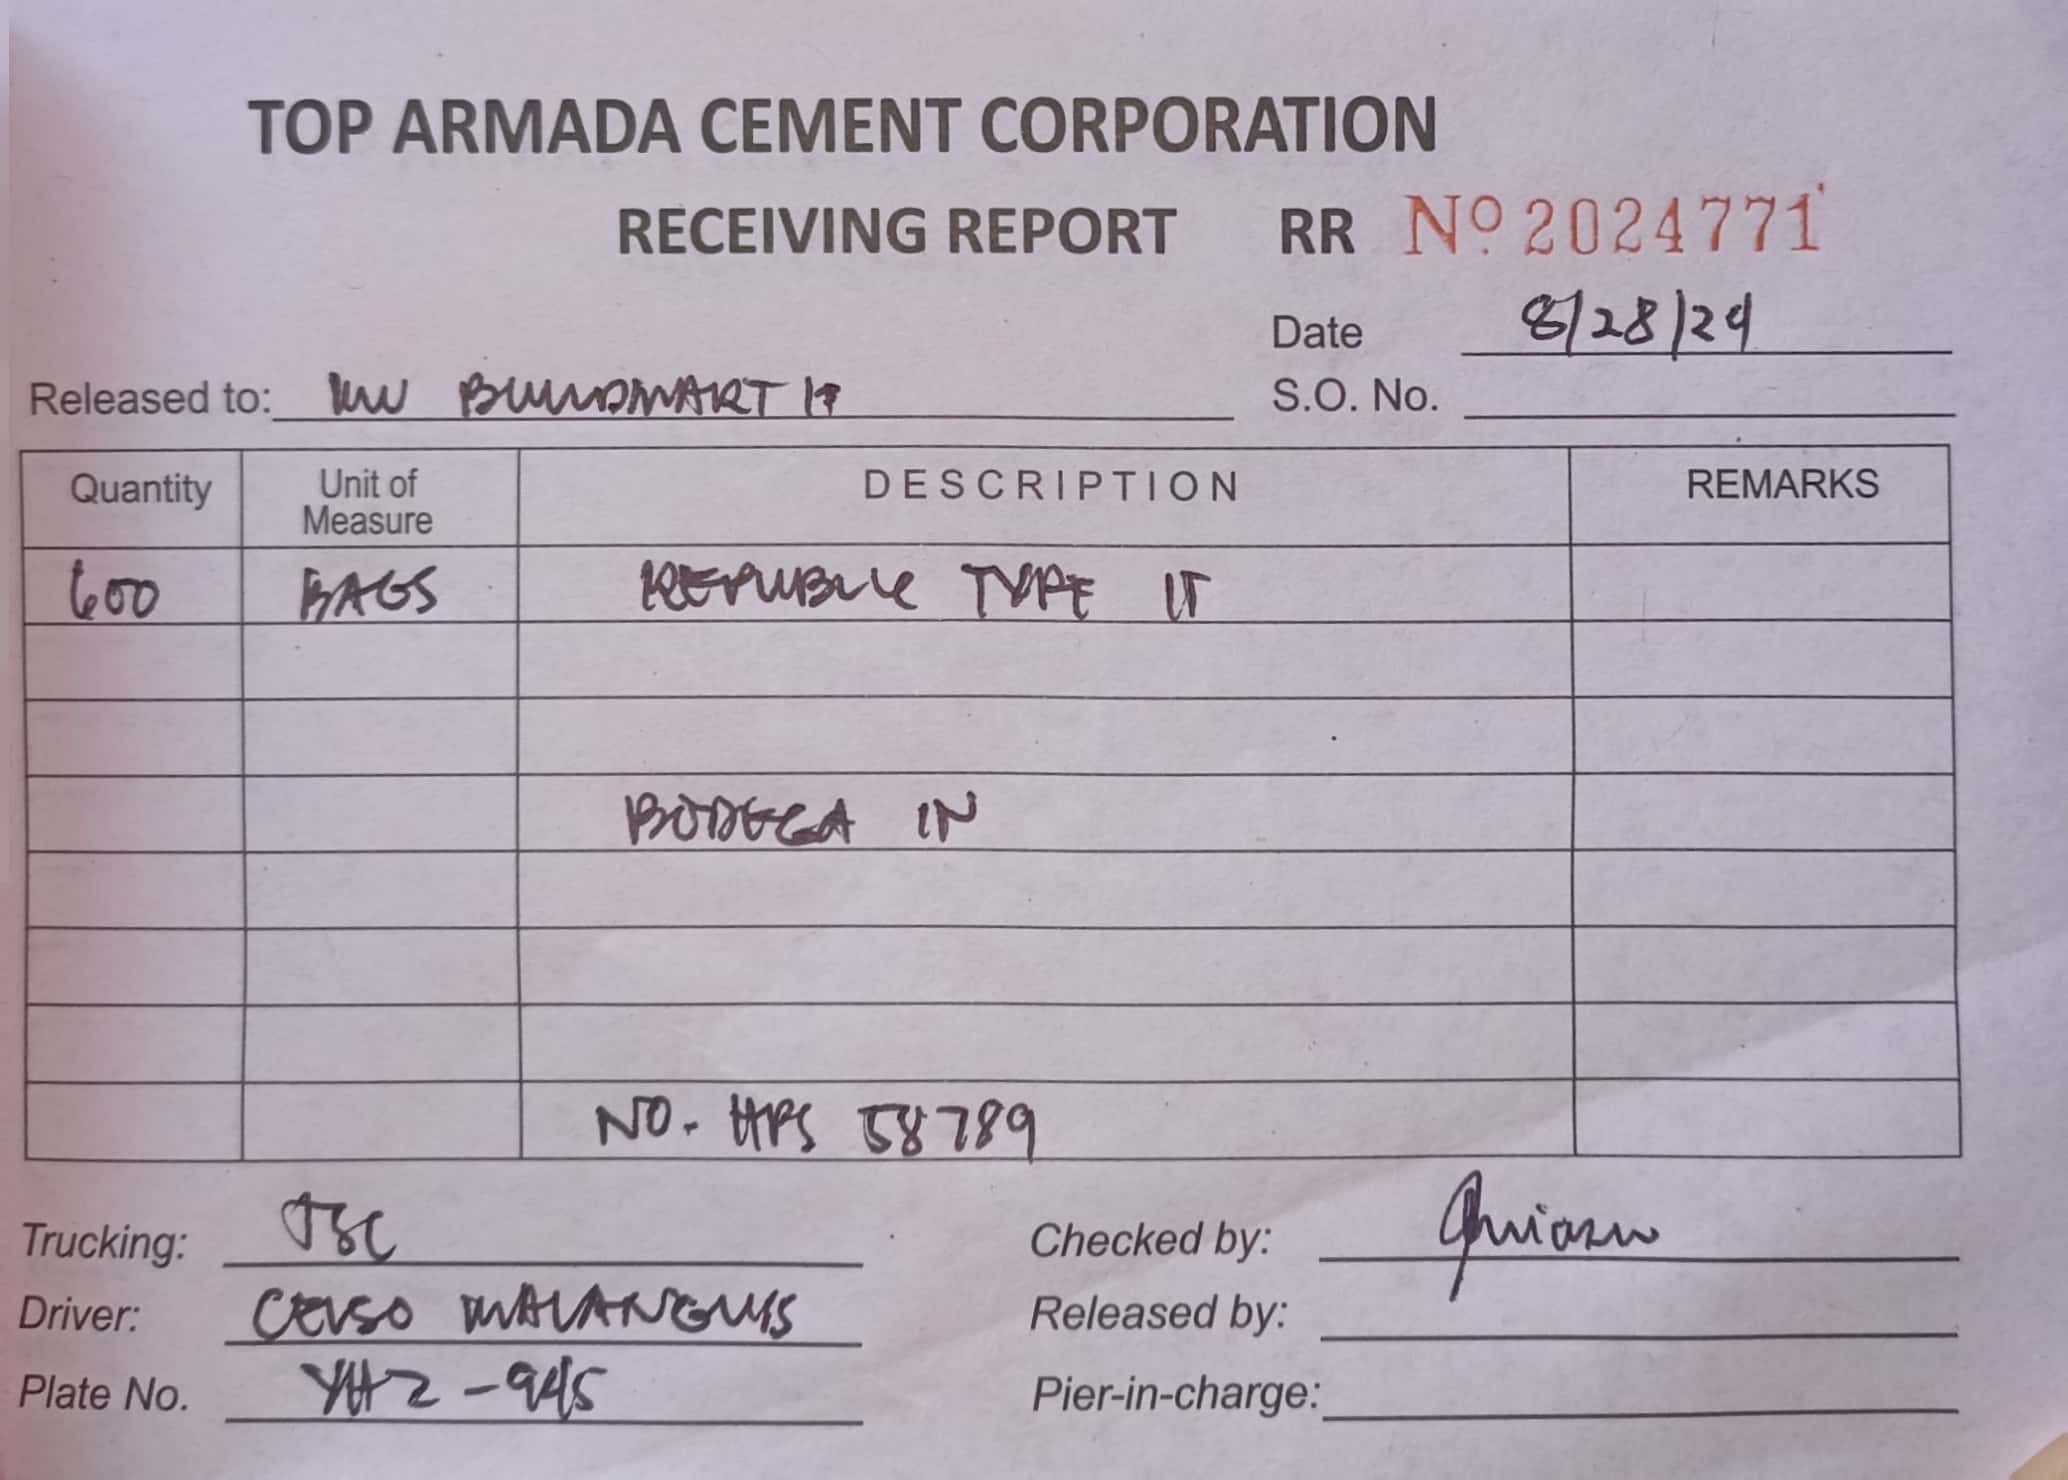 TOP ARMADA CEMENT CORPORATION
RECEIVING REPORT RR Nº 2024771
Date 8/28/24
Released to: BUILDMART
S.O. No.
Quantity Unit of Measure DESCRIPTION REMARKS
600 BAGS REPUBLIC TYPE 1T
BODEGA IN
NO. HPS 58789
Trucking: JSC
Checked by:
Driver: CELSO MALANGUIS
Released by:
Plate No. YHZ-945
Pier-in-charge: